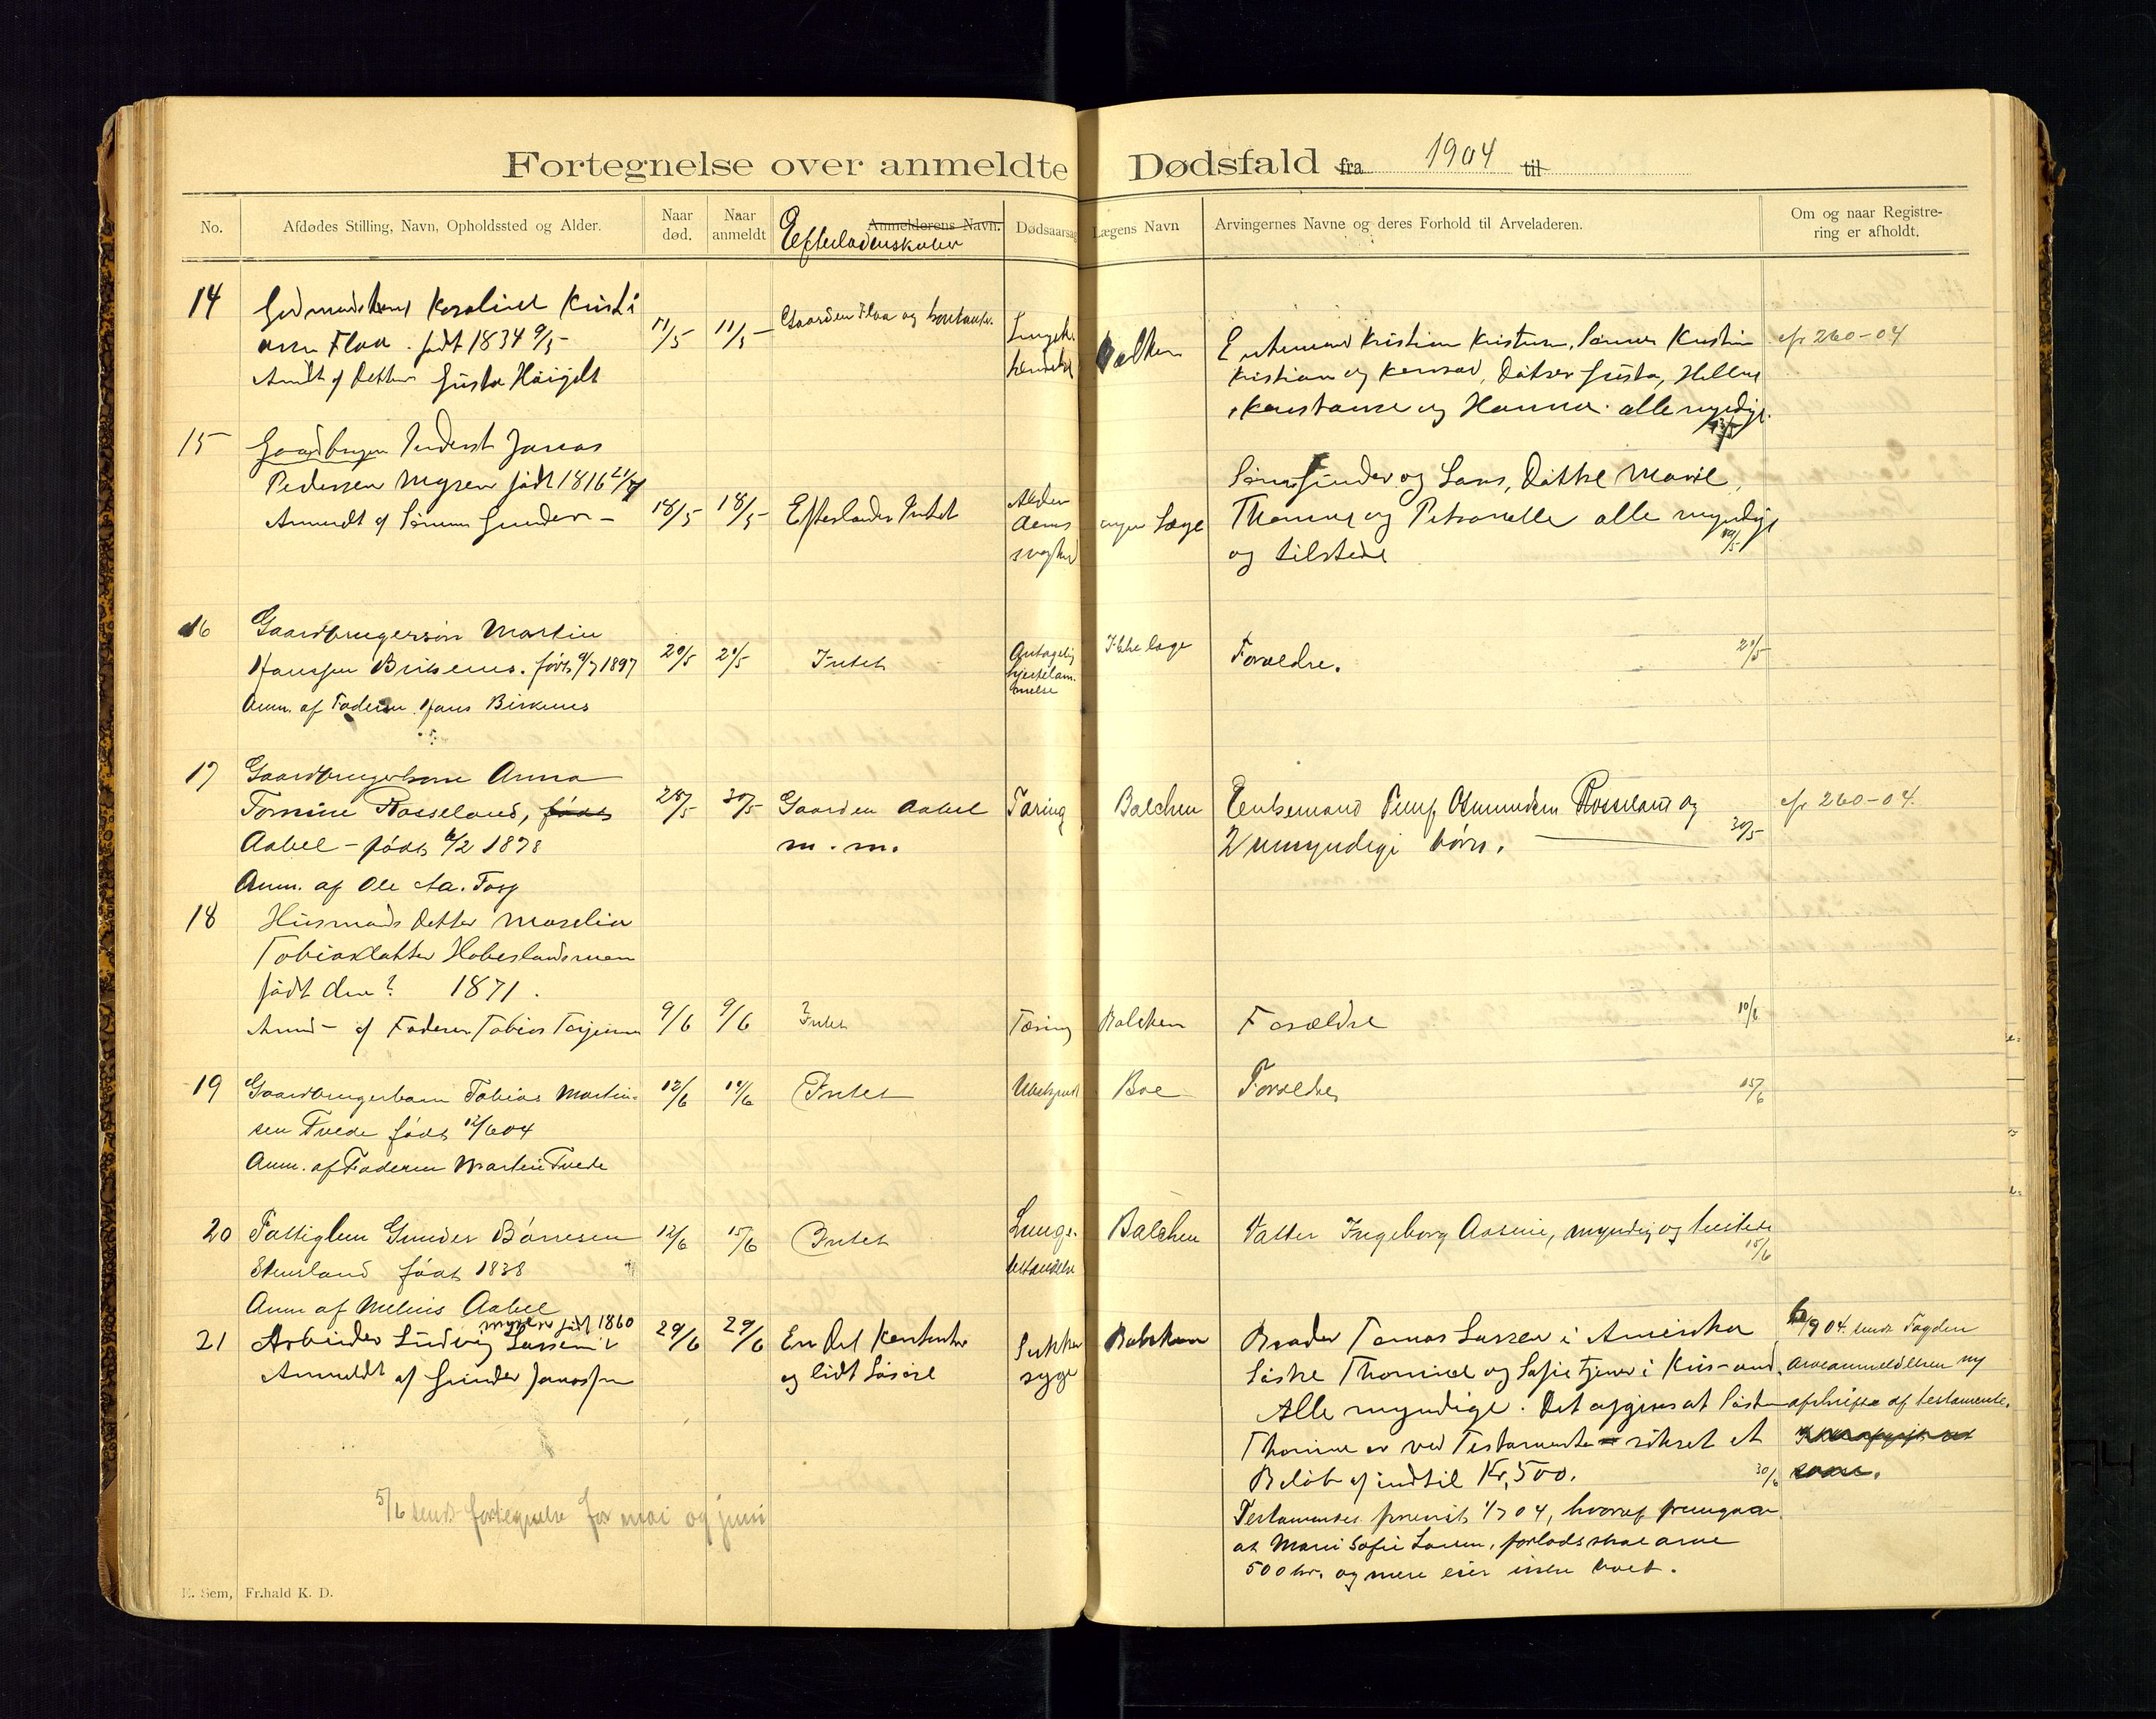 Fortegnelse over anmeldte Dødsfald fra 1904 til
No.
Afdødes Stilling, Navn, Opholdssted og Alder.
Naar død.
Naar anmeldt
Anmelderens Navn.
Efterladenskaber
Dødsaarsag
Lægens Navn
Arvingernes Navne og deres Forhold til Arveladeren.
Om og naar Registrering er afholdt.
14
Karoline Kristi
ansen Flaa. født 1834
Anmldt af Datteren Gusta
11/5
11/5
Gaarden Flaa og
Balchen
Enkemand Kristian Kristensen, Sønner Kristen
Kristian og Konrad, Døtrer Gusta, Helene
Konstanse og Hanna. alle myndige.
cfr 260-04
15
Gaardbruger Inderst Jonas
Pedersen Myren født 1816
Anmeldt af Sønnen Gunder
18/5
18/5
Efterlader Intet
Alderdoms
svaghed
ingen Læge
Sønner Gunder og Lars, Døttre Marie,
Thomine og Petronelle alle myndige
og tilstede
16
Gaardbrugersøn Martin
Hanssen Birkenes. født 1897
Anm. af Faderen Hans Birkenes
20/5
20/5
Intet
Antagelig
Hjertelam-
melse
Ikke læge
Forældre.
20/5
17
Gaardbrugerkone Anna
Tomine Rosseland, født
Aabel - født 6/2 1878
Anm. af Ole Aa.
28/5
30/5
Gaarden Aabel
m. m.
Tæring
Balchen
Enkemand Osmundsen Rosseland og
2 umyndige børn.
30/5
cfr 260-04.
18
Husmands Datter Maselia
Tobiasdatter
født den? 1871.
Anmd - af Faderen Tobias Terjesen
9/6
9/6
Intet
Tæring
Balchen
Forældre
10/6
19
Gaardbrugerbarn Tobias Martin-
sen Tvede født 12/6 04
Anm. af Faderen Martin Tvede
12/6
Intet
Ubekjendt
Boe
Forældre
15/6
20
Fattiglem Gunder Børresen
Stenrland født 1838
Anm af Melius Aabel
12/6
15/6
Intet
Lunge-
betændelse
Balchen
Datter Ingeborg Aasine, myndig og tilstede
15/6
21
Arbeider Ludvig Larsen
Myren født 1860
Anmeldt af Gunder Jonassen
29/6
29/6
En Del Kontanter
og lidt Løsøre
Sukker
syge
Balchen
Broder Tomas Larsen i Amerika
Søstre Thomine og Sofie tjener i Kris-and.
Alle myndige. Det opgives at Søster
Thomine er ved Testamente sikret et
Beløb af indtil Kr. 500.
30/6
Testamentet forevist 1/7 04, hvoraf fremgaar
at Marie Sofie Larsen, forlods skal arve
500 kr. og mere eier ikke boet.
/9 04. sendt Fogden
Arveanmeldelsen og
afskrift af testamente.
5/6 sendt fortegnelse for mai og juni
E. Sem, Fr.hald K. D.